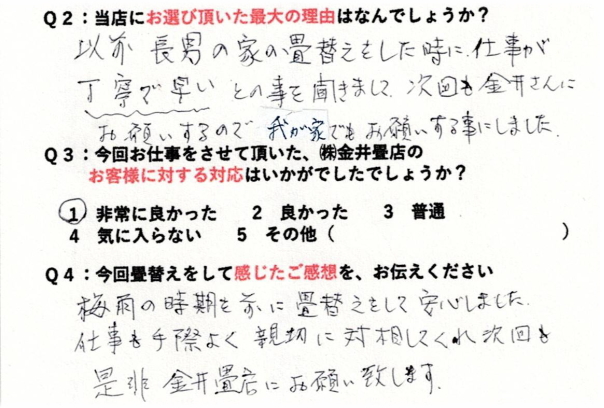 Q2：当店にお選び頂いた最大の理由はなんでしょうか？
以前 長男の家の畳替えをした時に、仕事が
丁寧で早い との事を聞きまして、次回も金井さんに
お願いするので 我が家でもお願いする事にしました。
Q3：今回お仕事をさせて頂いた、㈱金井畳店の
お客様に対する対応はいかがでしたでしょうか？
1 非常に良かった 2 良かった 3 普通
4 気に入らない 5 その他（ ）
Q4：今回畳替えをして感じたご感想を、お伝えください
梅雨の時期を前に畳替えをして安心しました。
仕事も手際よく親切に対相してくれ次回も
是非 金井畳店にお願い致します。